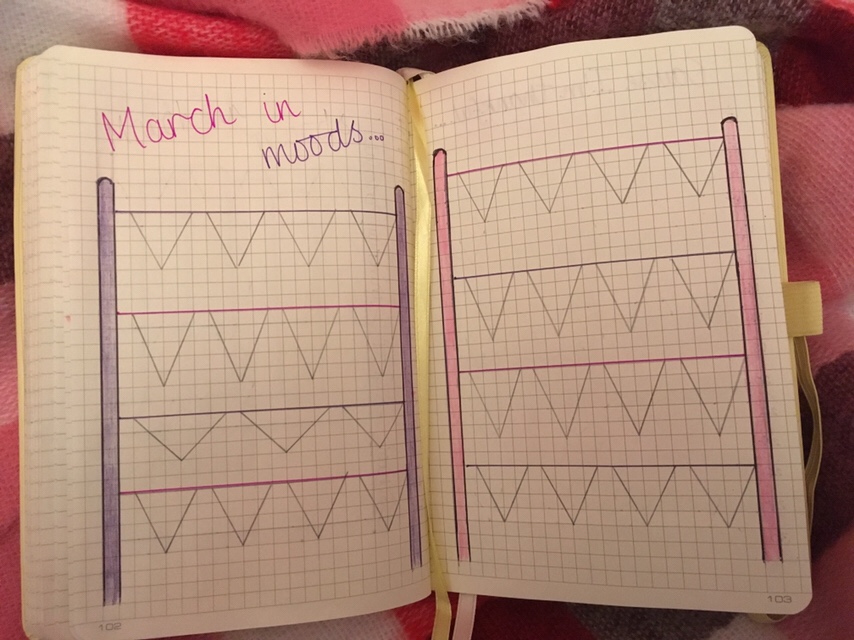 March in
moods...
102
103